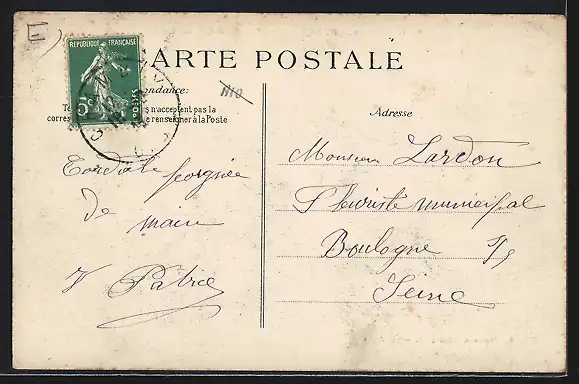 E
REPUBLIQUE FRANÇAISE
5c POSTES
CARTE POSTALE
ondance:
s n'acceptent pas la
corres e renseigner à la Poste
Adresse
Cordiale poignée
de
main
V Patrice
Monsieur Lardon
Fleuriste municipal
Boulogne s/s
Seine